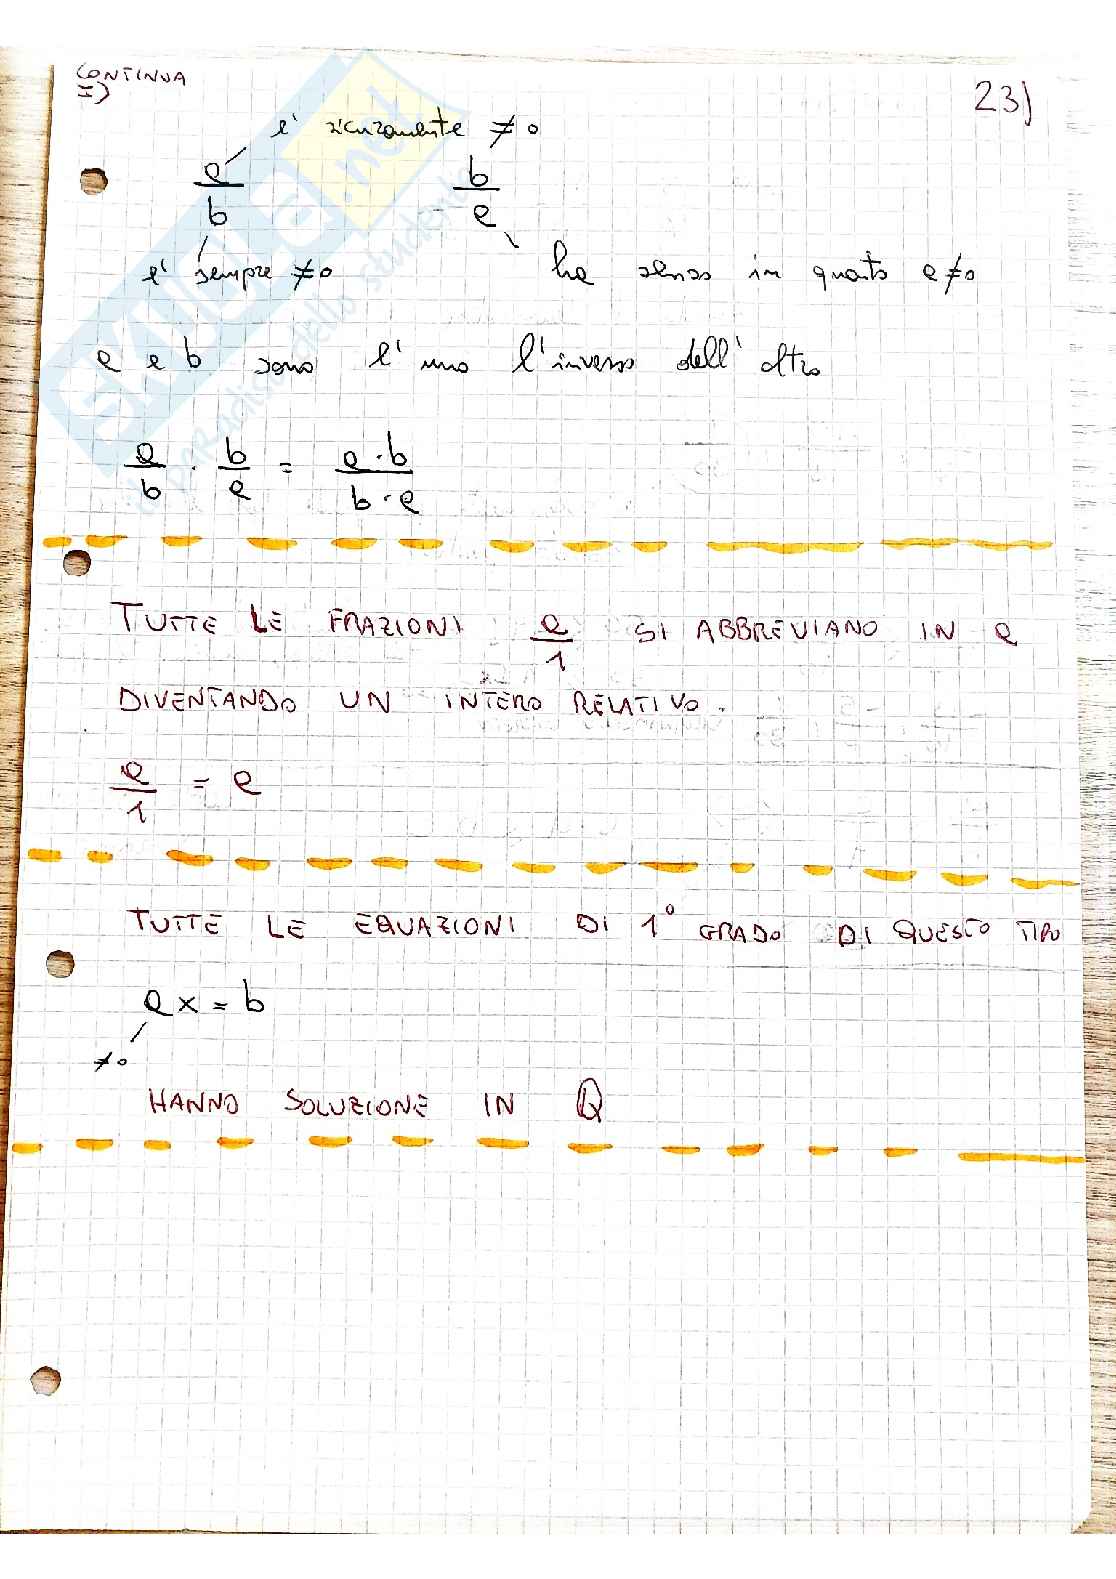 CONTINUA
I)
23)
e' sicuramente ≠0
a/b b/a
e' sempre ≠0 ha senso in quanto a≠0
a e b sono l'uno l'inverso dell'altro
a/b · b/a = a·b/b·a
TUTTE LE FRAZIONI a/1 SI ABBREVIANO IN a
DIVENTANDO UN INTERO RELATIVO.
a/1 = a
TUTTE LE EQUAZIONI DI 1° GRADO DI QUESTO TIPO
ax = b
≠0
HANNO SOLUZIONE IN Q
SKUOLA.net
il paradiso dello studente